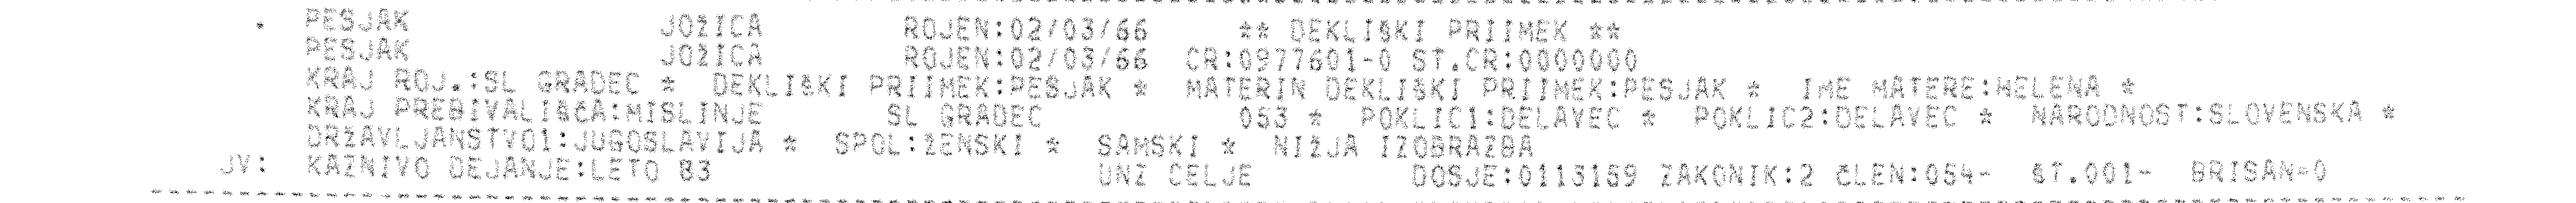 . PESJAK JOŽICA ROJEN:02/03/66 ** DEKLIŠKI PRIIMEK **
PESJAK JOŽICA ROJEN:02/03/66 CR:0977601-0 ST.CR:0000000
KRAJ ROJ.:SL GRADEC * DEKLIŠKI PRIIMEK:PESJAK * MATERIN DEKLIŠKI PRIIMEK:PESJAK * IME MATERE:HELENA *
KRAJ PREBIVALIŠČA:MISLINJE SL GRADEC 053 * POKLIC1:DELAVEC * POKLIC2:DELAVEC * NARODNOST:SLOVENSKA *
DRŽAVLJANSTVO1:JUGOSLAVIJA * SPOL:ŽENSKI * SAMSKI * NIŽJA IZOBRAZBA
JV: KAZNIVO DEJANJE:LETO 83 UNZ CELJE DOSJE:0113159 ZAKONIK:2 ČLEN:054- ŠT.001- BRISAN=0